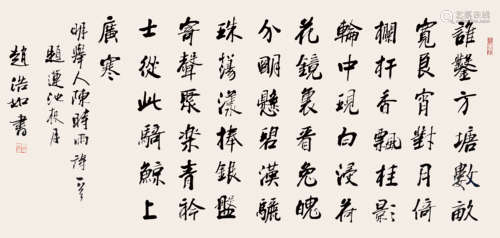 誰鑿方塘數畝
寬良宵對月倚
欄杆香飄桂影
輪中現白浸荷
花鏡裏看兔魄
分明懸碧漢驪
珠蕩漾捧銀盤
寄聲眾樂青衿
士從此騎鯨上
廣寒
明舉人陳時雨詩一首
題蓮池夜月
趙浩如書